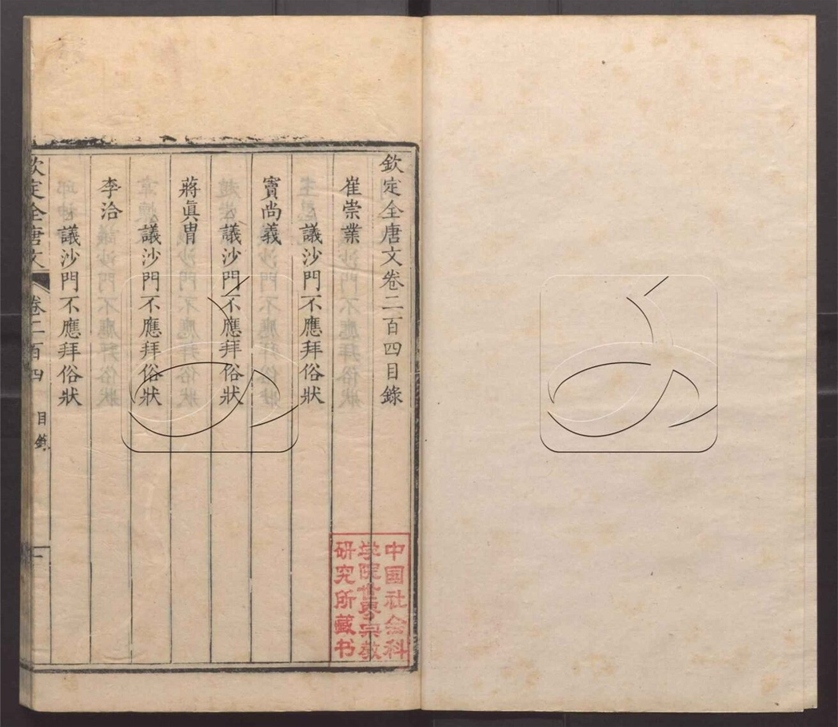 欽定全唐文卷二百四目錄
崔崇業
議沙門不應拜俗狀
竇尚義
議沙門不應拜俗狀
蔣眞胄
議沙門不應拜俗狀
李洽
議沙門不應拜俗狀
欽定全唐文
卷二百四
目錄
一
中国社会科
学院世界宗教
研究所藏书